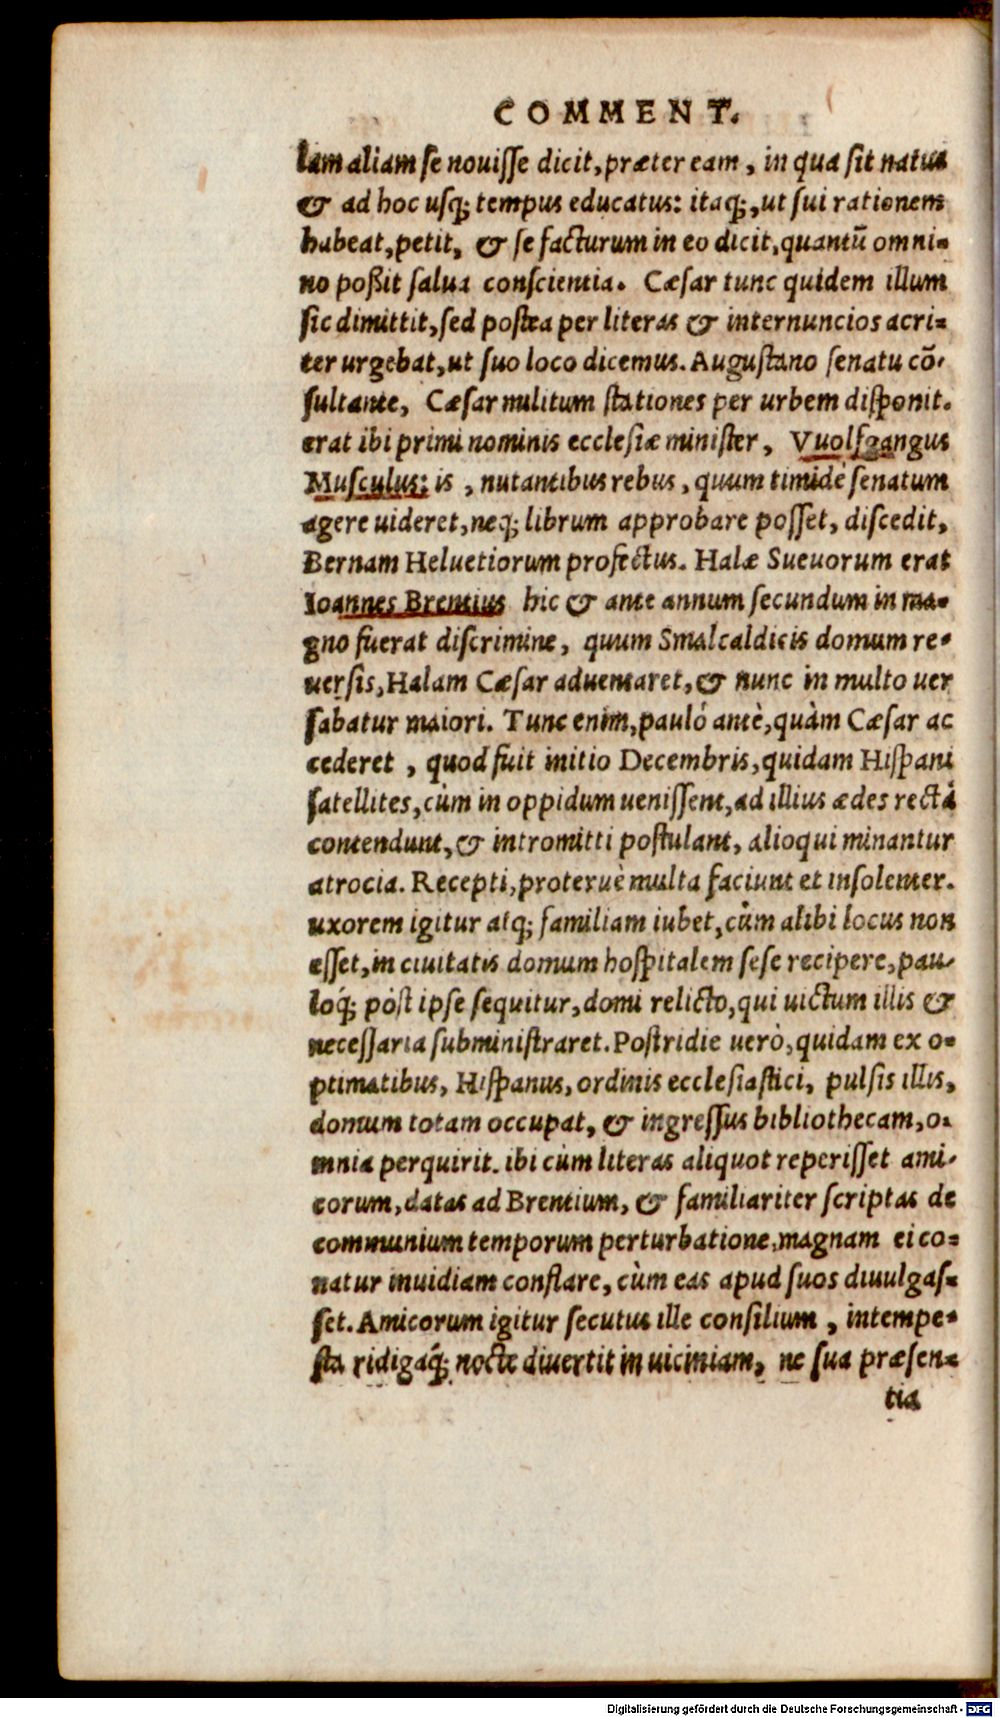 COMMENT.
lam aliam se nouisse dicit, præter eam, in qua sit natus
& ad hoc usq; tempus educatus: itaq;, ut sui rationem
habeat, petit, & se facturum in eo dicit, quantū omni=
no poßit salua conscientia. Cæsar tunc quidem illum
sic dimittit, sed postea per literas & internuncios acri=
ter urgebat, ut suo loco dicemus. Augustano senatu cō-
sultante, Cæsar militum stationes per urbem disponit.
erat ibi primi nominis ecclesiæ minister, Vuolfgangus
Musculus: is, nutantibus rebus, quum timidè senatum
agere uideret, neq; librum approbare posset, discedit,
Bernam Heluetiorum profectus. Halæ Sueuorum erat
Ioannes Brentius hic & ante annum secundum in ma-
gno fuerat discrimine, quum Smalcaldicis domum re-
uersis, Halam Cæsar aduentaret, & nunc in multo uer
sabatur maiori. Tunc enim, pauló antè, quàm Cæsar ac
cederet, quod fuit initio Decembris, quidam Hispani
satellites, cùm in oppidum uenissent, ad illius ædes rectà
contendunt, & intromitti postulant, alioqui minantur
atrocia. Recepti, proteruè multa faciunt et insolenter.
uxorem igitur atq; familiam iubet, cùm alibi locus non
esset, in ciuitatis domum hospitalem sese recipere, pau-
loq́; pòst ipse sequitur, domi relicto, qui uictum illis &
necessaria subministraret. Postridie uerò, quidam ex o=
ptimatibus, Hispanus, ordinis ecclesiastici, pulsis illis,
domum totam occupat, & ingressus bibliothecam, o-
mnia perquirit. ibi cùm literas aliquot reperisset ami-
corum, datas ad Brentium, & familiariter scriptas de
communium temporum perturbatione, magnam ei co=
natur inuidiam conflare, cùm eas apud suos diuulgas=
set. Amicorum igitur secutus ille consilium, intempe-
sta ridigaq́; nocte diuertit in uiciniam, ne sua præsen=
tia
Digitalisierung gefördert durch die Deutsche Forschungsgemeinschaft - DFG